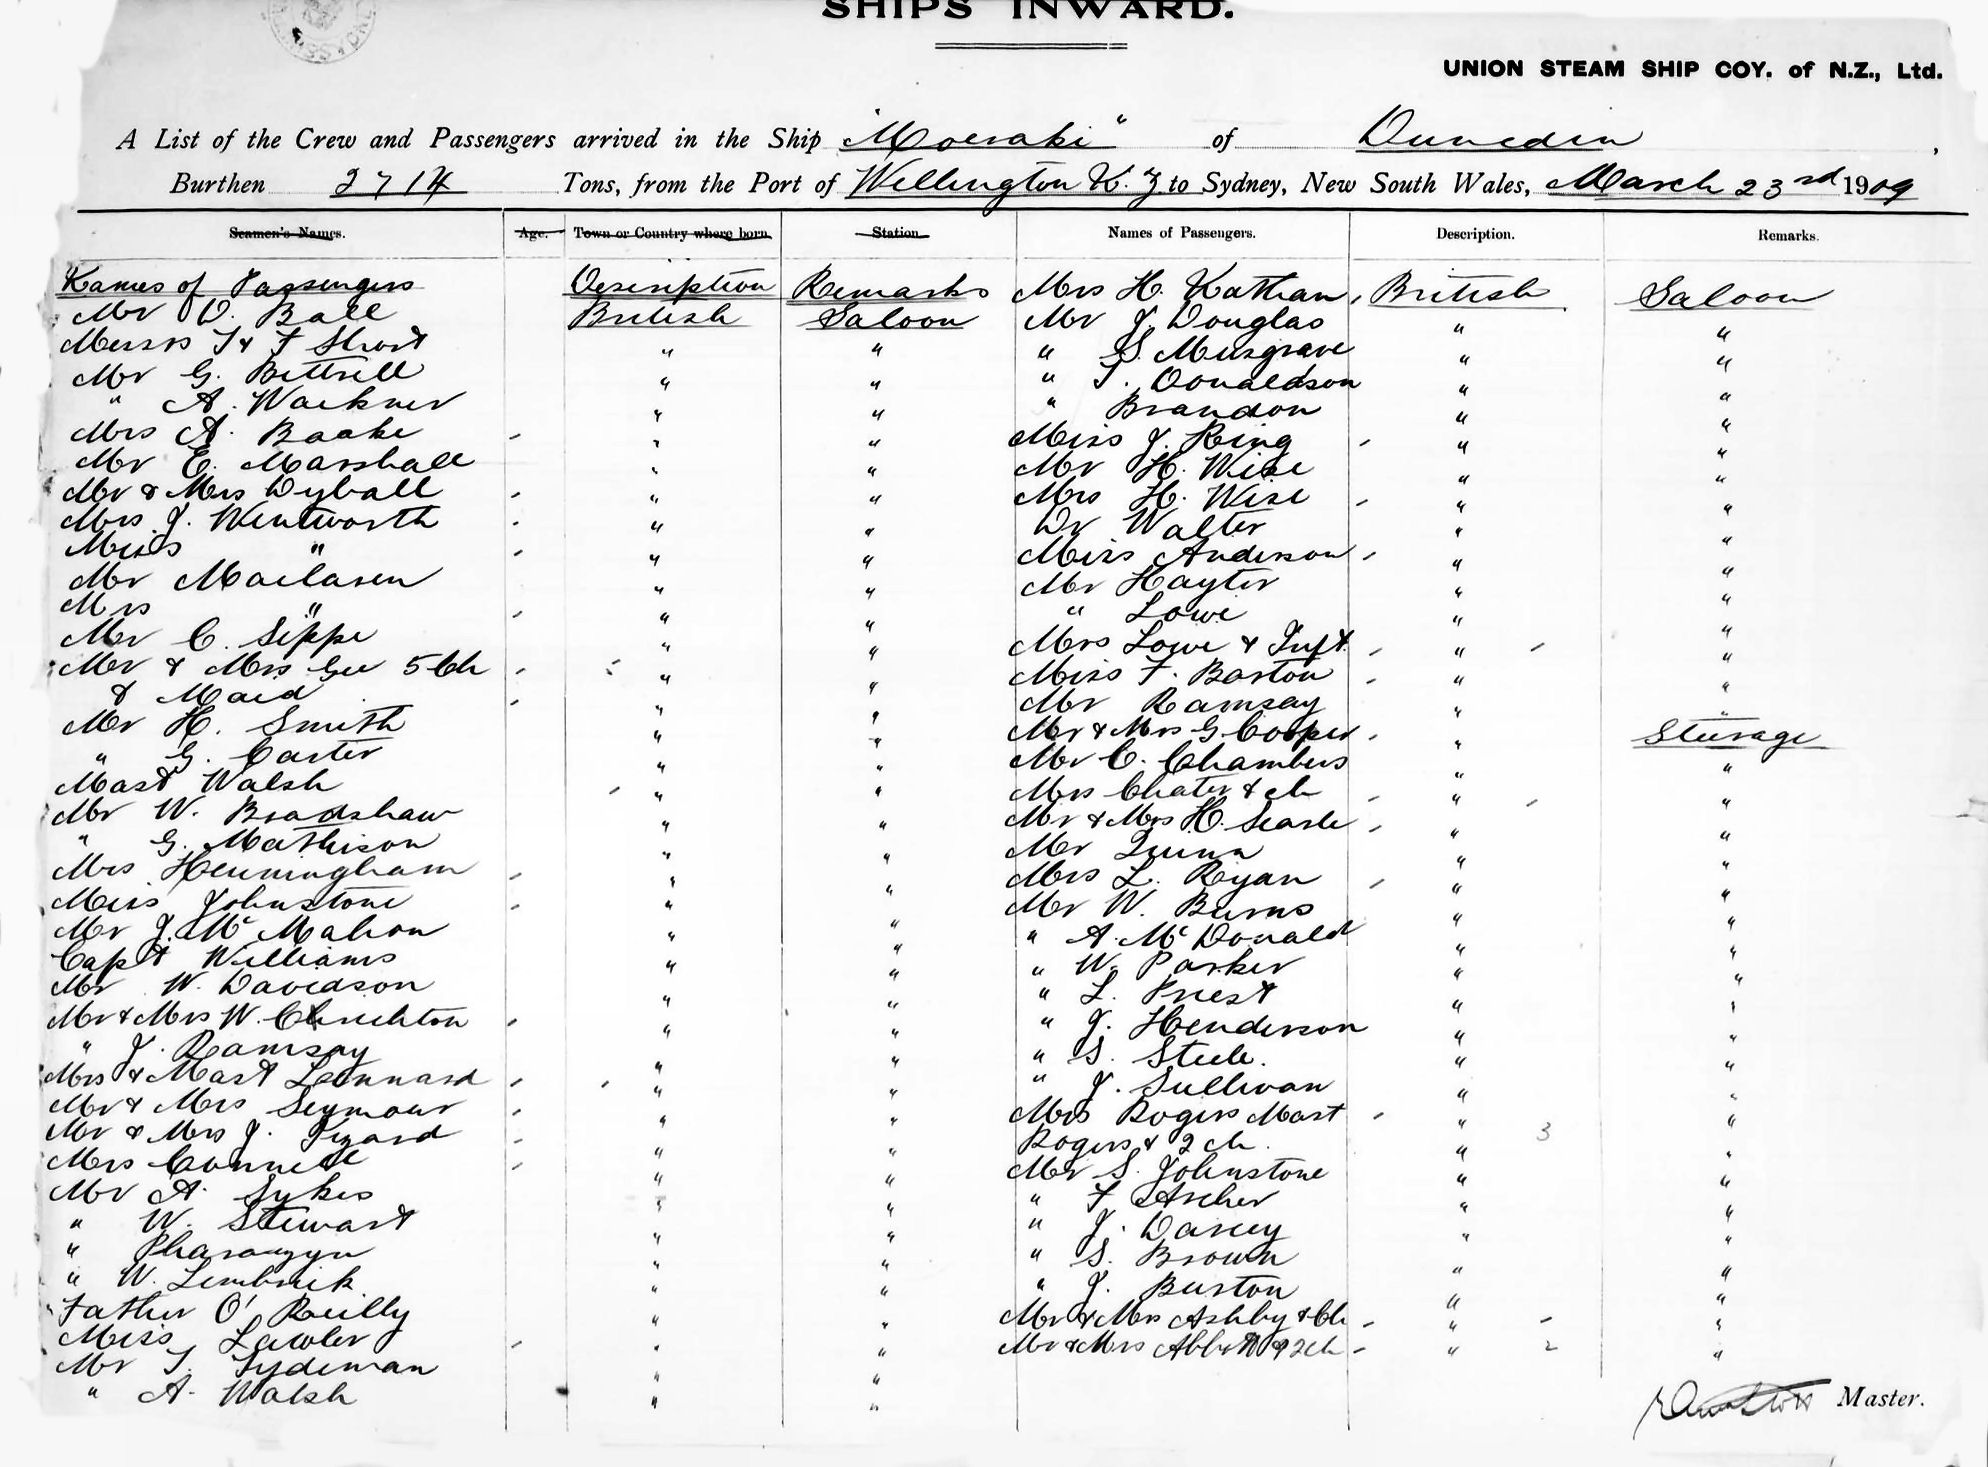 SHIPS INWARD.
UNION STEAM SHIP COY. of N.Z., Ltd.
A List of the Crew and Passengers arrived in the Ship "Moeraki" of Dunedin,
Burthen 2714 Tons, from the Port of Wellington N.Z to Sydney, New South Wales, March 23rd 1909
Seamen's Names. Age. Town or Country where born. Station. Names of Passengers. Description. Remarks.
Names of Passengers Description Remarks
Mr D. Ball British Saloon
Messrs T & F Short " "
Mr G. Bettrell " "
" A. Wackner " "
Mrs A. Baake " "
Mr E. Marshall " "
Mr & Mrs Dyball " "
Mrs J. Wentworth " "
Miss " " "
Mr Maclaren " "
Mrs " " "
Mr C. Sippe " "
Mr & Mrs Gee 5 Ch " "
& Maid " "
Mr H. Smith " "
" G. Carter " "
Mast Walsh " "
Mr W. Bradshaw " "
" G. Mathison " "
Mrs Henningham " "
Miss Johnstone " "
Mr J. McMahon " "
Capt Williams " "
Mr W. Davidson " "
Mr & Mrs W. Crichton " "
" J. Ramsay " "
Mrs & Mast Lennard " "
Mr & Mrs Seymour " "
Mr & Mrs J. " "
Mrs Connell " "
Mr A. Sykes " "
" W. Stewart " "
" Pharazyn " "
" W. " "
Father O'Reilly " "
Miss Lawler " "
Mr T. Tydeman " "
" A. Walsh " "
Mrs H. Nathan British Saloon
Mr J. Douglas " "
" S. Musgrave " "
" T. Donaldson " "
" Brandon " "
Miss J. King " "
Mr H. Wise " "
Mrs H. Wise " "
Dr Walter " "
Miss Anderson " "
Mr Hayter " "
" Lowe " "
Mrs Lowe & Inft. " "
Miss F. Barton " "
Mr Ramsay " "
Mr & Mrs G Cooper " Steerage
Mr C. Chambers " "
Mrs Chater & ch " "
Mr & Mrs H. Searle " "
Mr Quinn " "
Mrs L. Ryan " "
Mr W. Burns " "
" A. McDonald " "
" W. Parker " "
" L. Priest " "
" J. Henderson " "
" S. Steele. " "
" J. Sullivan " "
Mrs Rogers Mast " "
Rogers & 2 ch. " 3 "
Mr S. Johnstone " "
" F Archer " "
" J. Darcy " "
" S. Brown " "
" J. Burton " "
Mr & Mrs Ashby & Ch " "
Mr & Mrs Abbott & 2 ch " 2 "
Master.